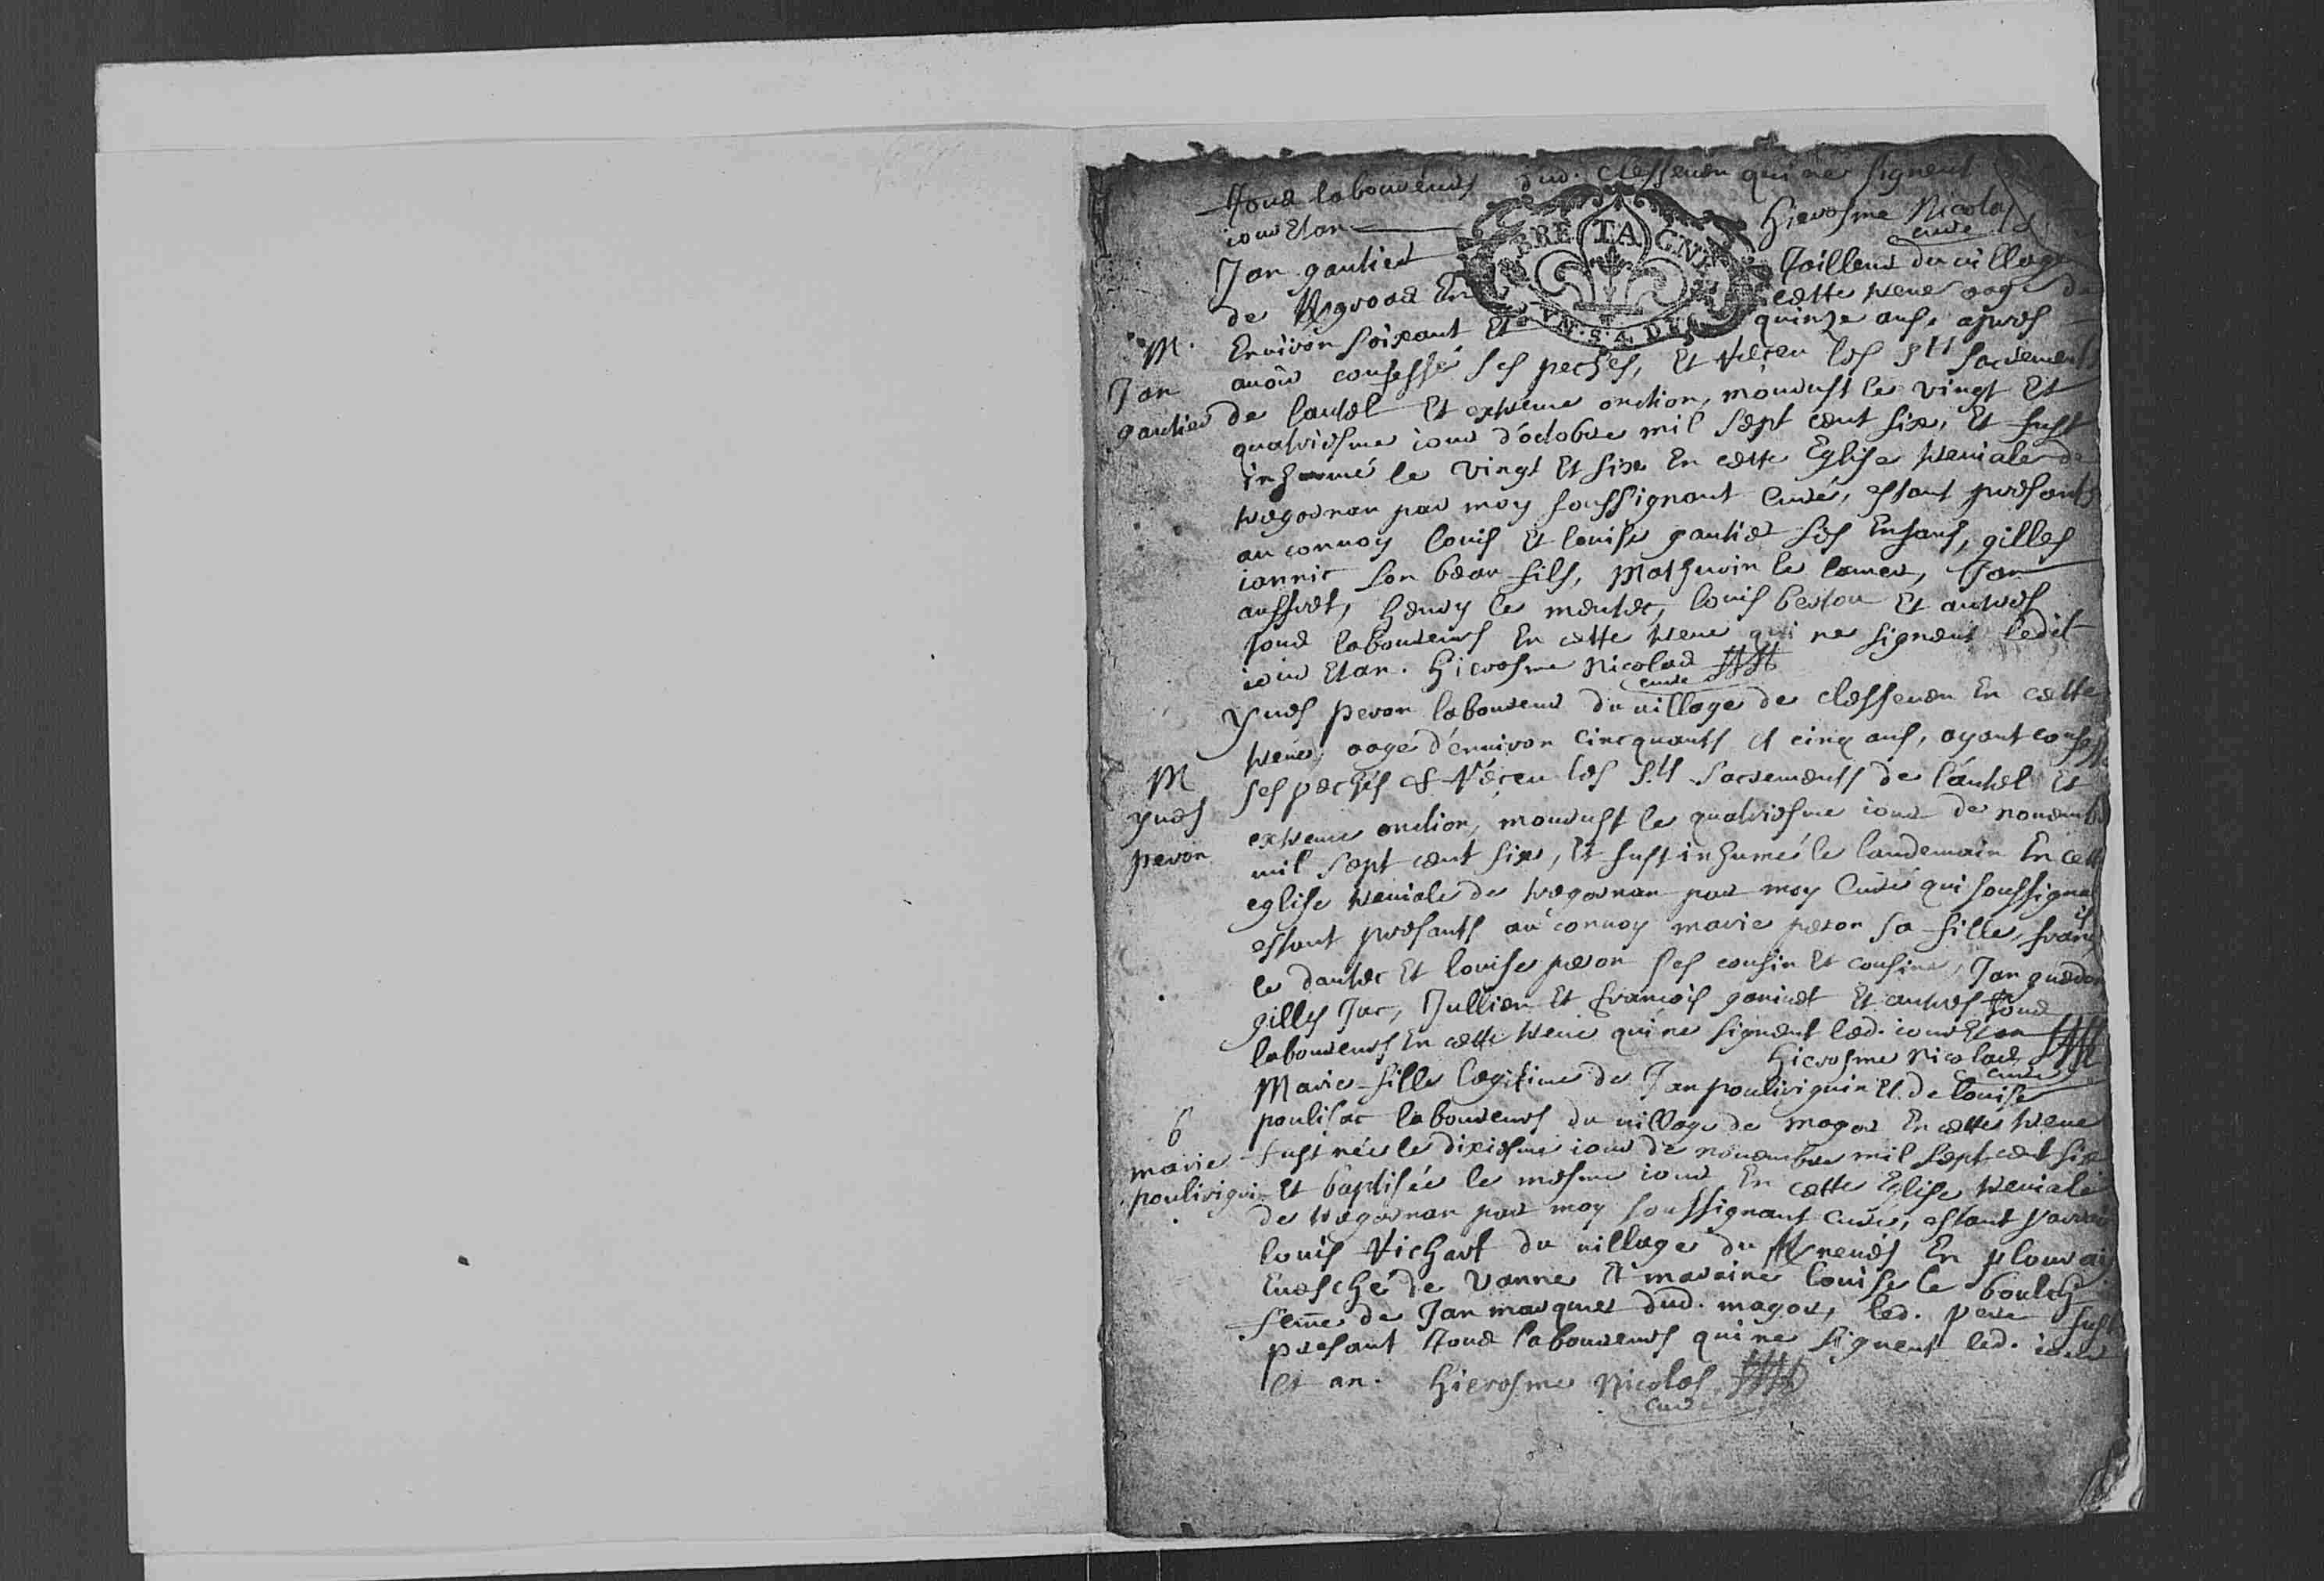 tous laboureurs dud. Clesseven qui ne signent
iour et an
Hierosme Nicolas
curé
BRETAGNE
Jan gautier
Tailleur du village
de en
cette treve aagé de
M.
Environ soixant et
quinze ans, apres
Jan
avoir confessé ses peches, et receu les Sts sacrements
gautier
de lautel et extreme onction, mourust le vingt et
quatriesme iour d'octobre mil sept cent six, et fust
inhumé le vingt et six en cette Eglise treviale de
tregornan par moy soussignant curé, estant presants
au convoy louis et louise gautier ses enfans, gilles
iannic son beau fils, Mathurin le lamer, Jan
auffret, henry le mentec, louis berlou et autres
tous laboureurs en cette treve qui ne signent ledit
iour et an. Hierosme Nicolas
curé
Yves peron laboureur du village de clesseven en cette
treve, aagé d'environ cincquants et cinq ans, ayant confessé
M
ses pechés & receu les Sts sacrements de l'autel et
yves
extreme onction, mourust le quatriesme iour de novemb
peron
mil sept cent six, et fust inhumé le landemain en cette
eglise treviale de tregornan par moy Curé qui soussigne
estant presants au convoy marie peron sa fille, françois
le dantec et louise peron ses cousin et cousine, Jan guedon
gilles Juc, Jullien et François ganivet et autres tous
laboureurs en cette treve qui ne signent led. iour et an
Hierosme Nicolas
curé
Marie fille legitime de Jan pouliviguin et de louise
poulisac laboureurs du village de magor en cette treve
6
marie
fust née le dixiesme iour de novembre mil sept cent six
pouliviguin
et baptisée le mesme iour en cette Eglise treviale
de tregornan par moy soussignant curé, estant parrain
louis Richart du village du en plouray
Evesché de Vanne et maraine louise le boulch
feme de Jan marquer dud. magor, led. pere fust
presant tous laboureurs qui ne signent led. iour
et an. Hierosme Nicolas
curé